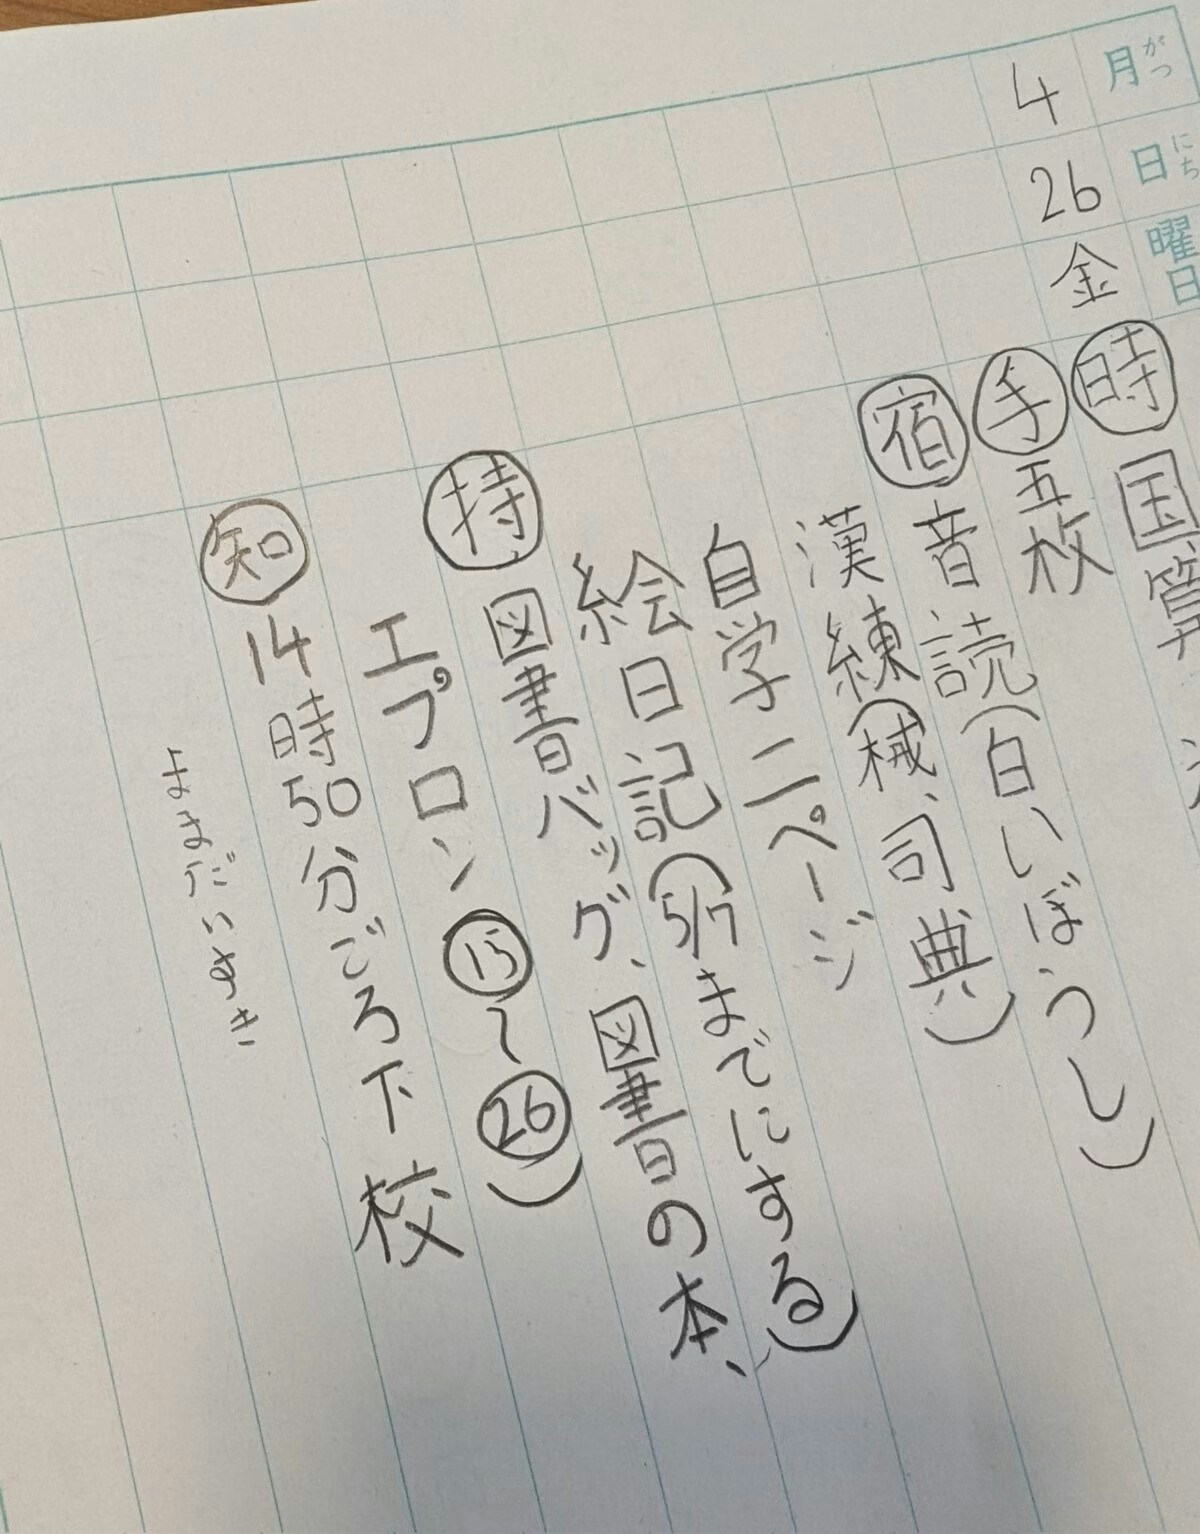 月 がつ
日 にち
曜日
4
26
金
時 国算
手 五枚
宿 音読(白いぼうし)
漢練(械、司典)
自学二ページ
絵日記(5/7までにする)
持 図書バッグ、図書の本、
エプロン⑬〜㉖)
知 14時50分ごろ下校
ままだいすき